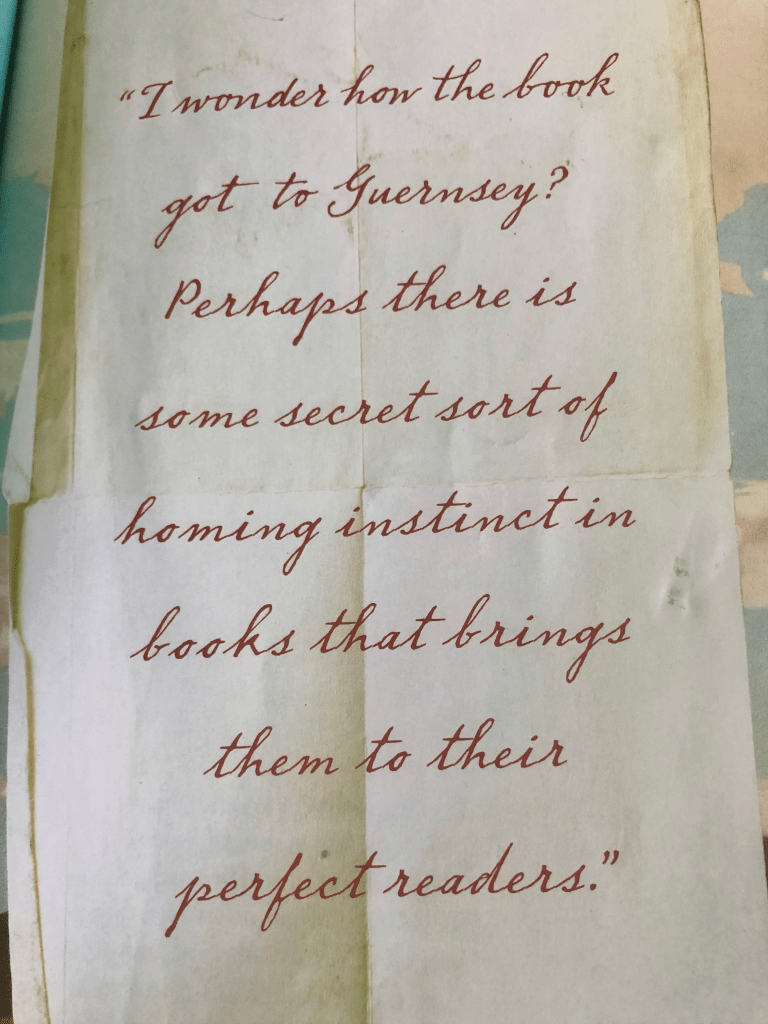 “I wonder how the book
got to Guernsey?
Perhaps there is
some secret sort of
homing instinct in
books that brings
them to their
perfect readers.”